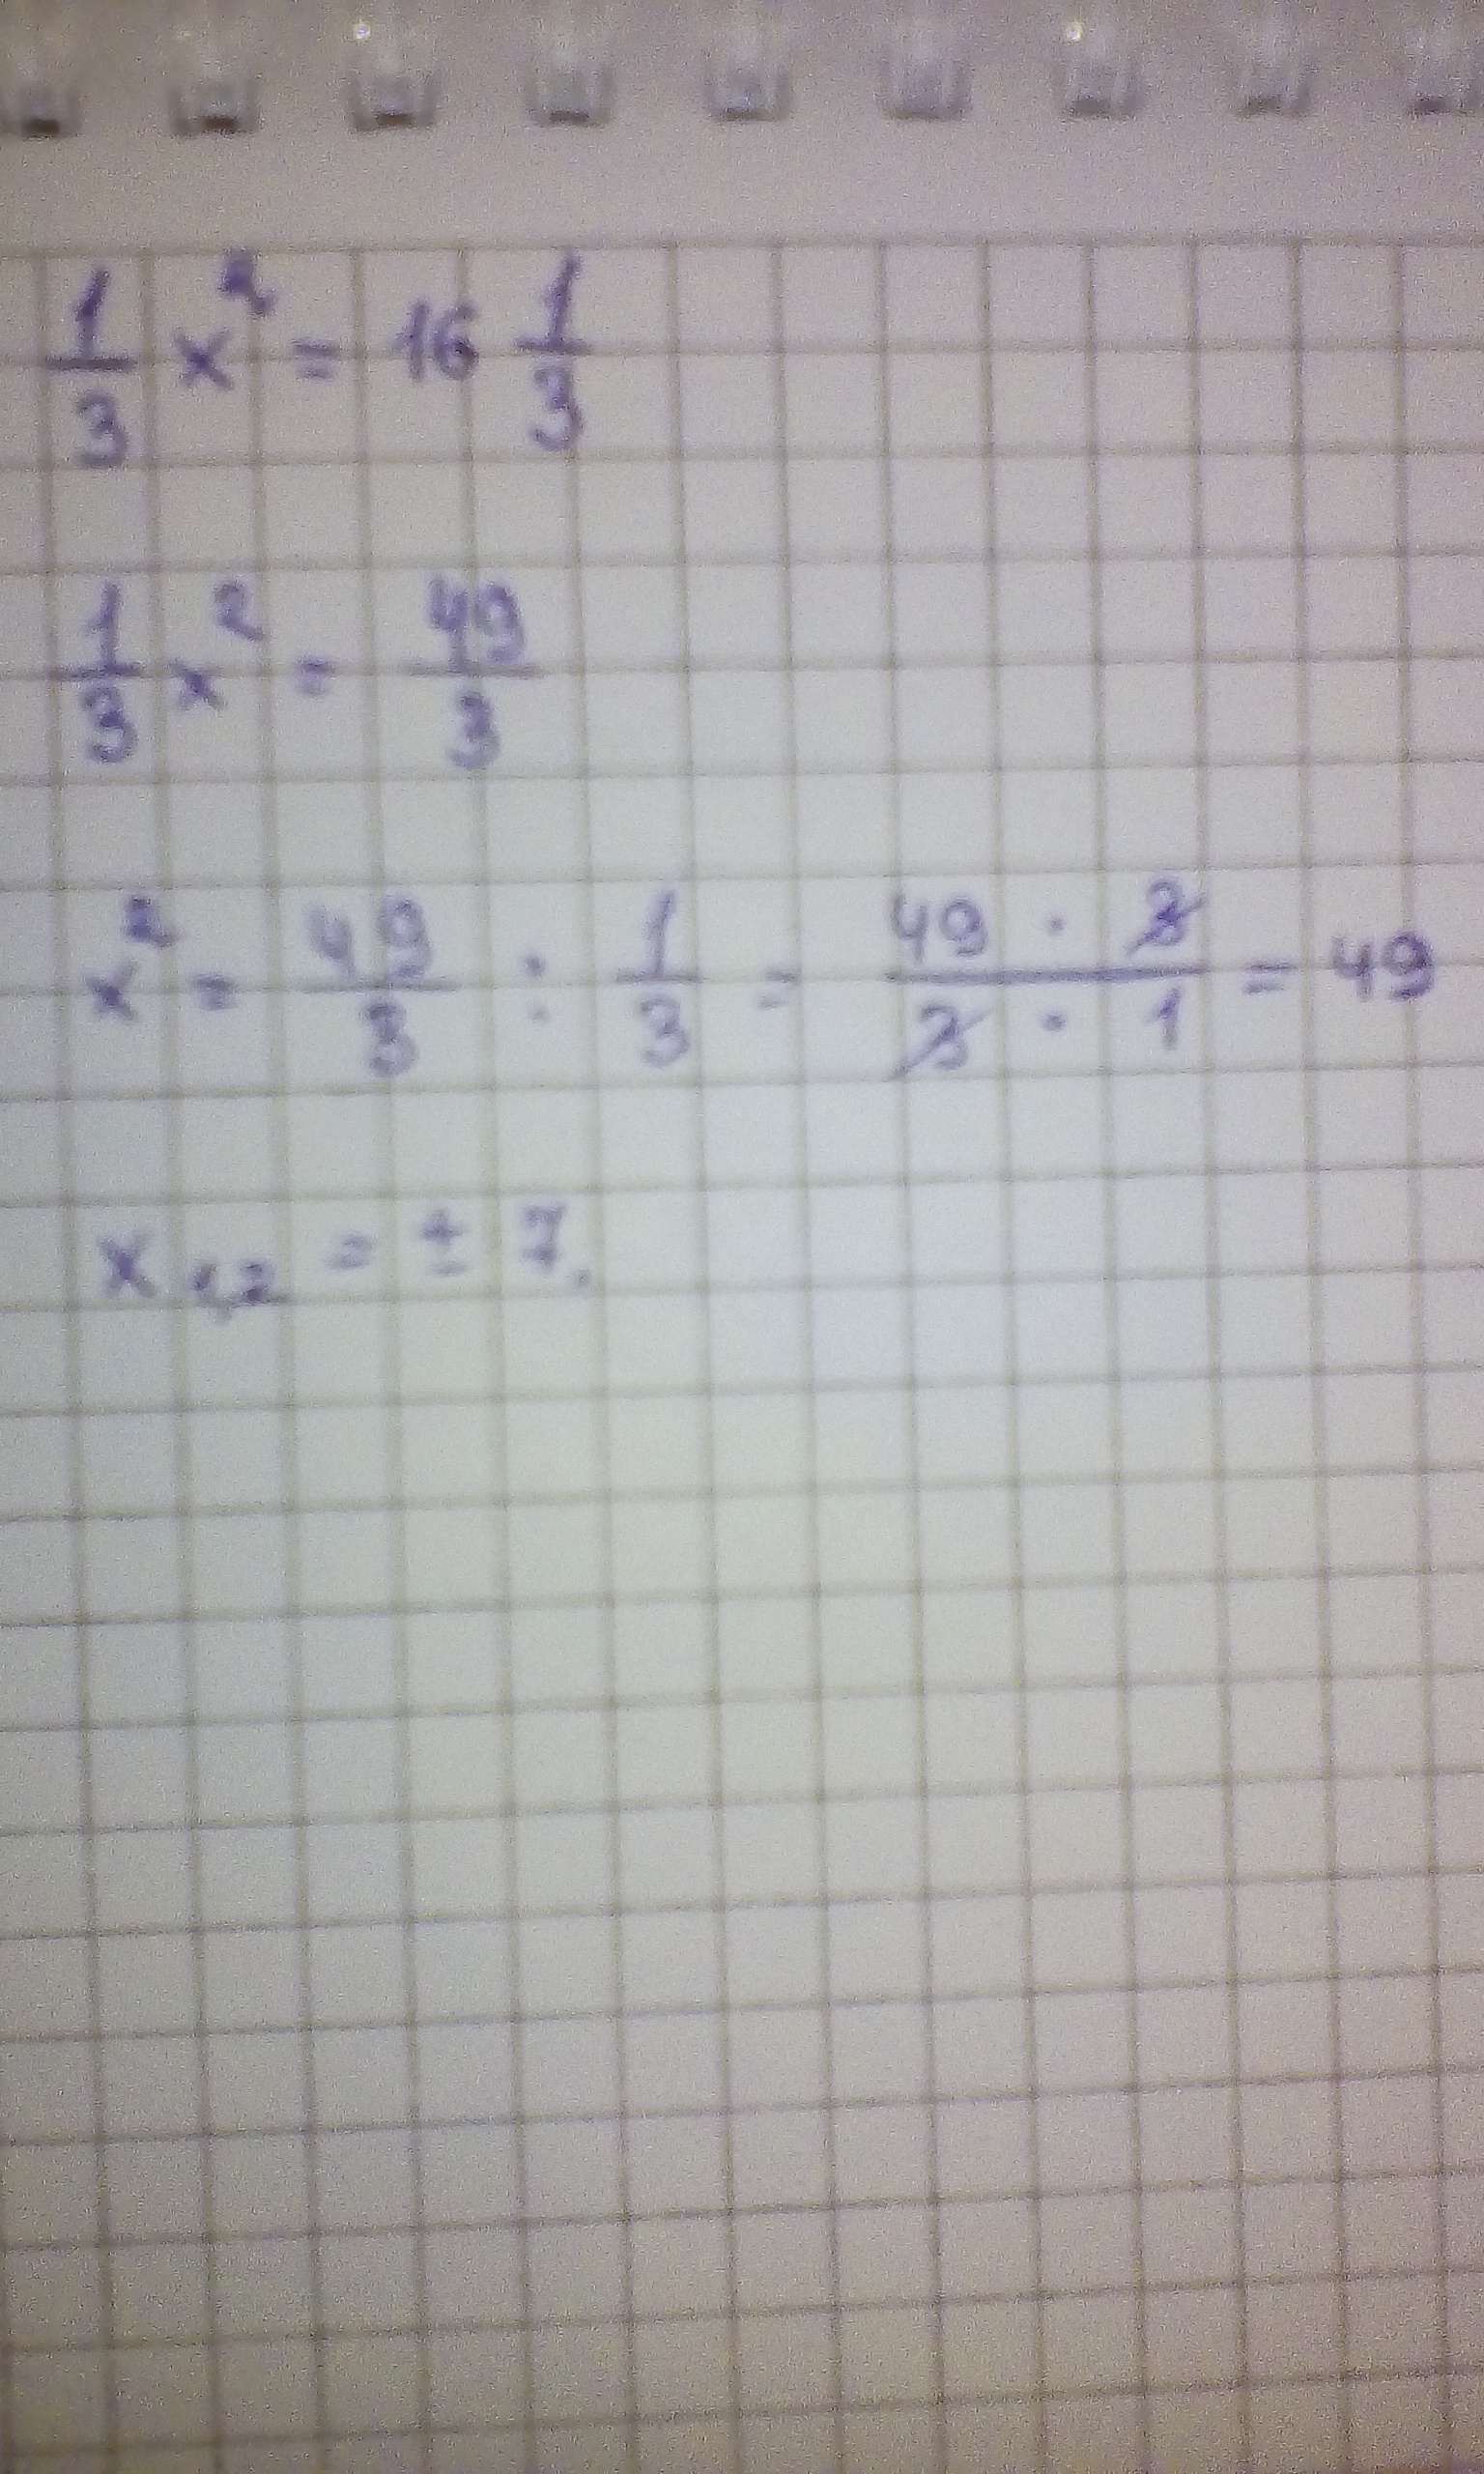 1/3 x² = 16 1/3
1/3 x² = 49/3
x² = 49/3 : 1/3 = (49 · 3)/(3 · 1) = 49
x₁,₂ = ± 7.